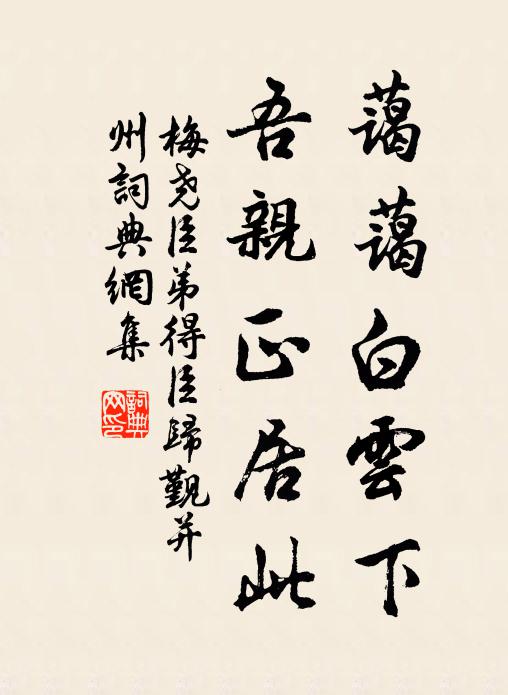 藹藹白雲下
吾親正居此
梅堯臣弟得臣歸覲并
州詞典網集
詞典
网印